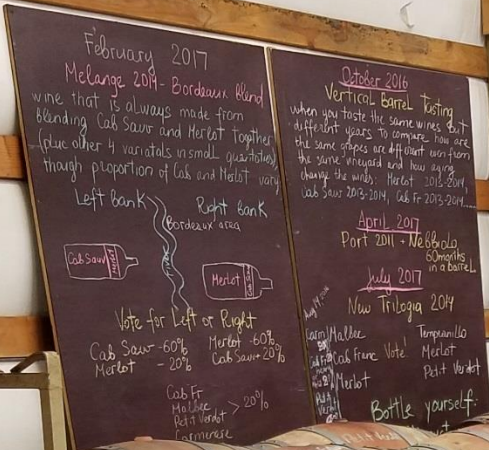 February 2017
Melange 2014 - Bordeaux blend
wine that is always made from
blending Cab Sauv and Merlot together
(plus other 4 variatals in small quantaties)
though proportion of Cab and Merlot vary
Left bank
Right bank
Bordeaux area
Cab Sauv
Merlot
Vote for Left or Right
Cab Sauv - 60%
Merlot - 20%
Merlot - 60%
Cab Sauv - 20%
Cab Fr
Malbec
Petit Verdot > 20%
Carmenere
October 2016
Vertical Barrel Tasting
when you taste the same wines but
different years to compare how are
the same grapes are different even from
the same vineyard and how aging
change the wines: Merlot 2013-2014,
Cab Sauv 2013-2014, Cab Fr 2013-2014
April 2017
Port 2011 + Nebbiolo
60 months
in a barrel
July 2017
New Trilogia 2014
Malbec
Cab Franc
Merlot
Vote!
Tempranillo
Merlot
Petit Verdot
Bottle yourself: